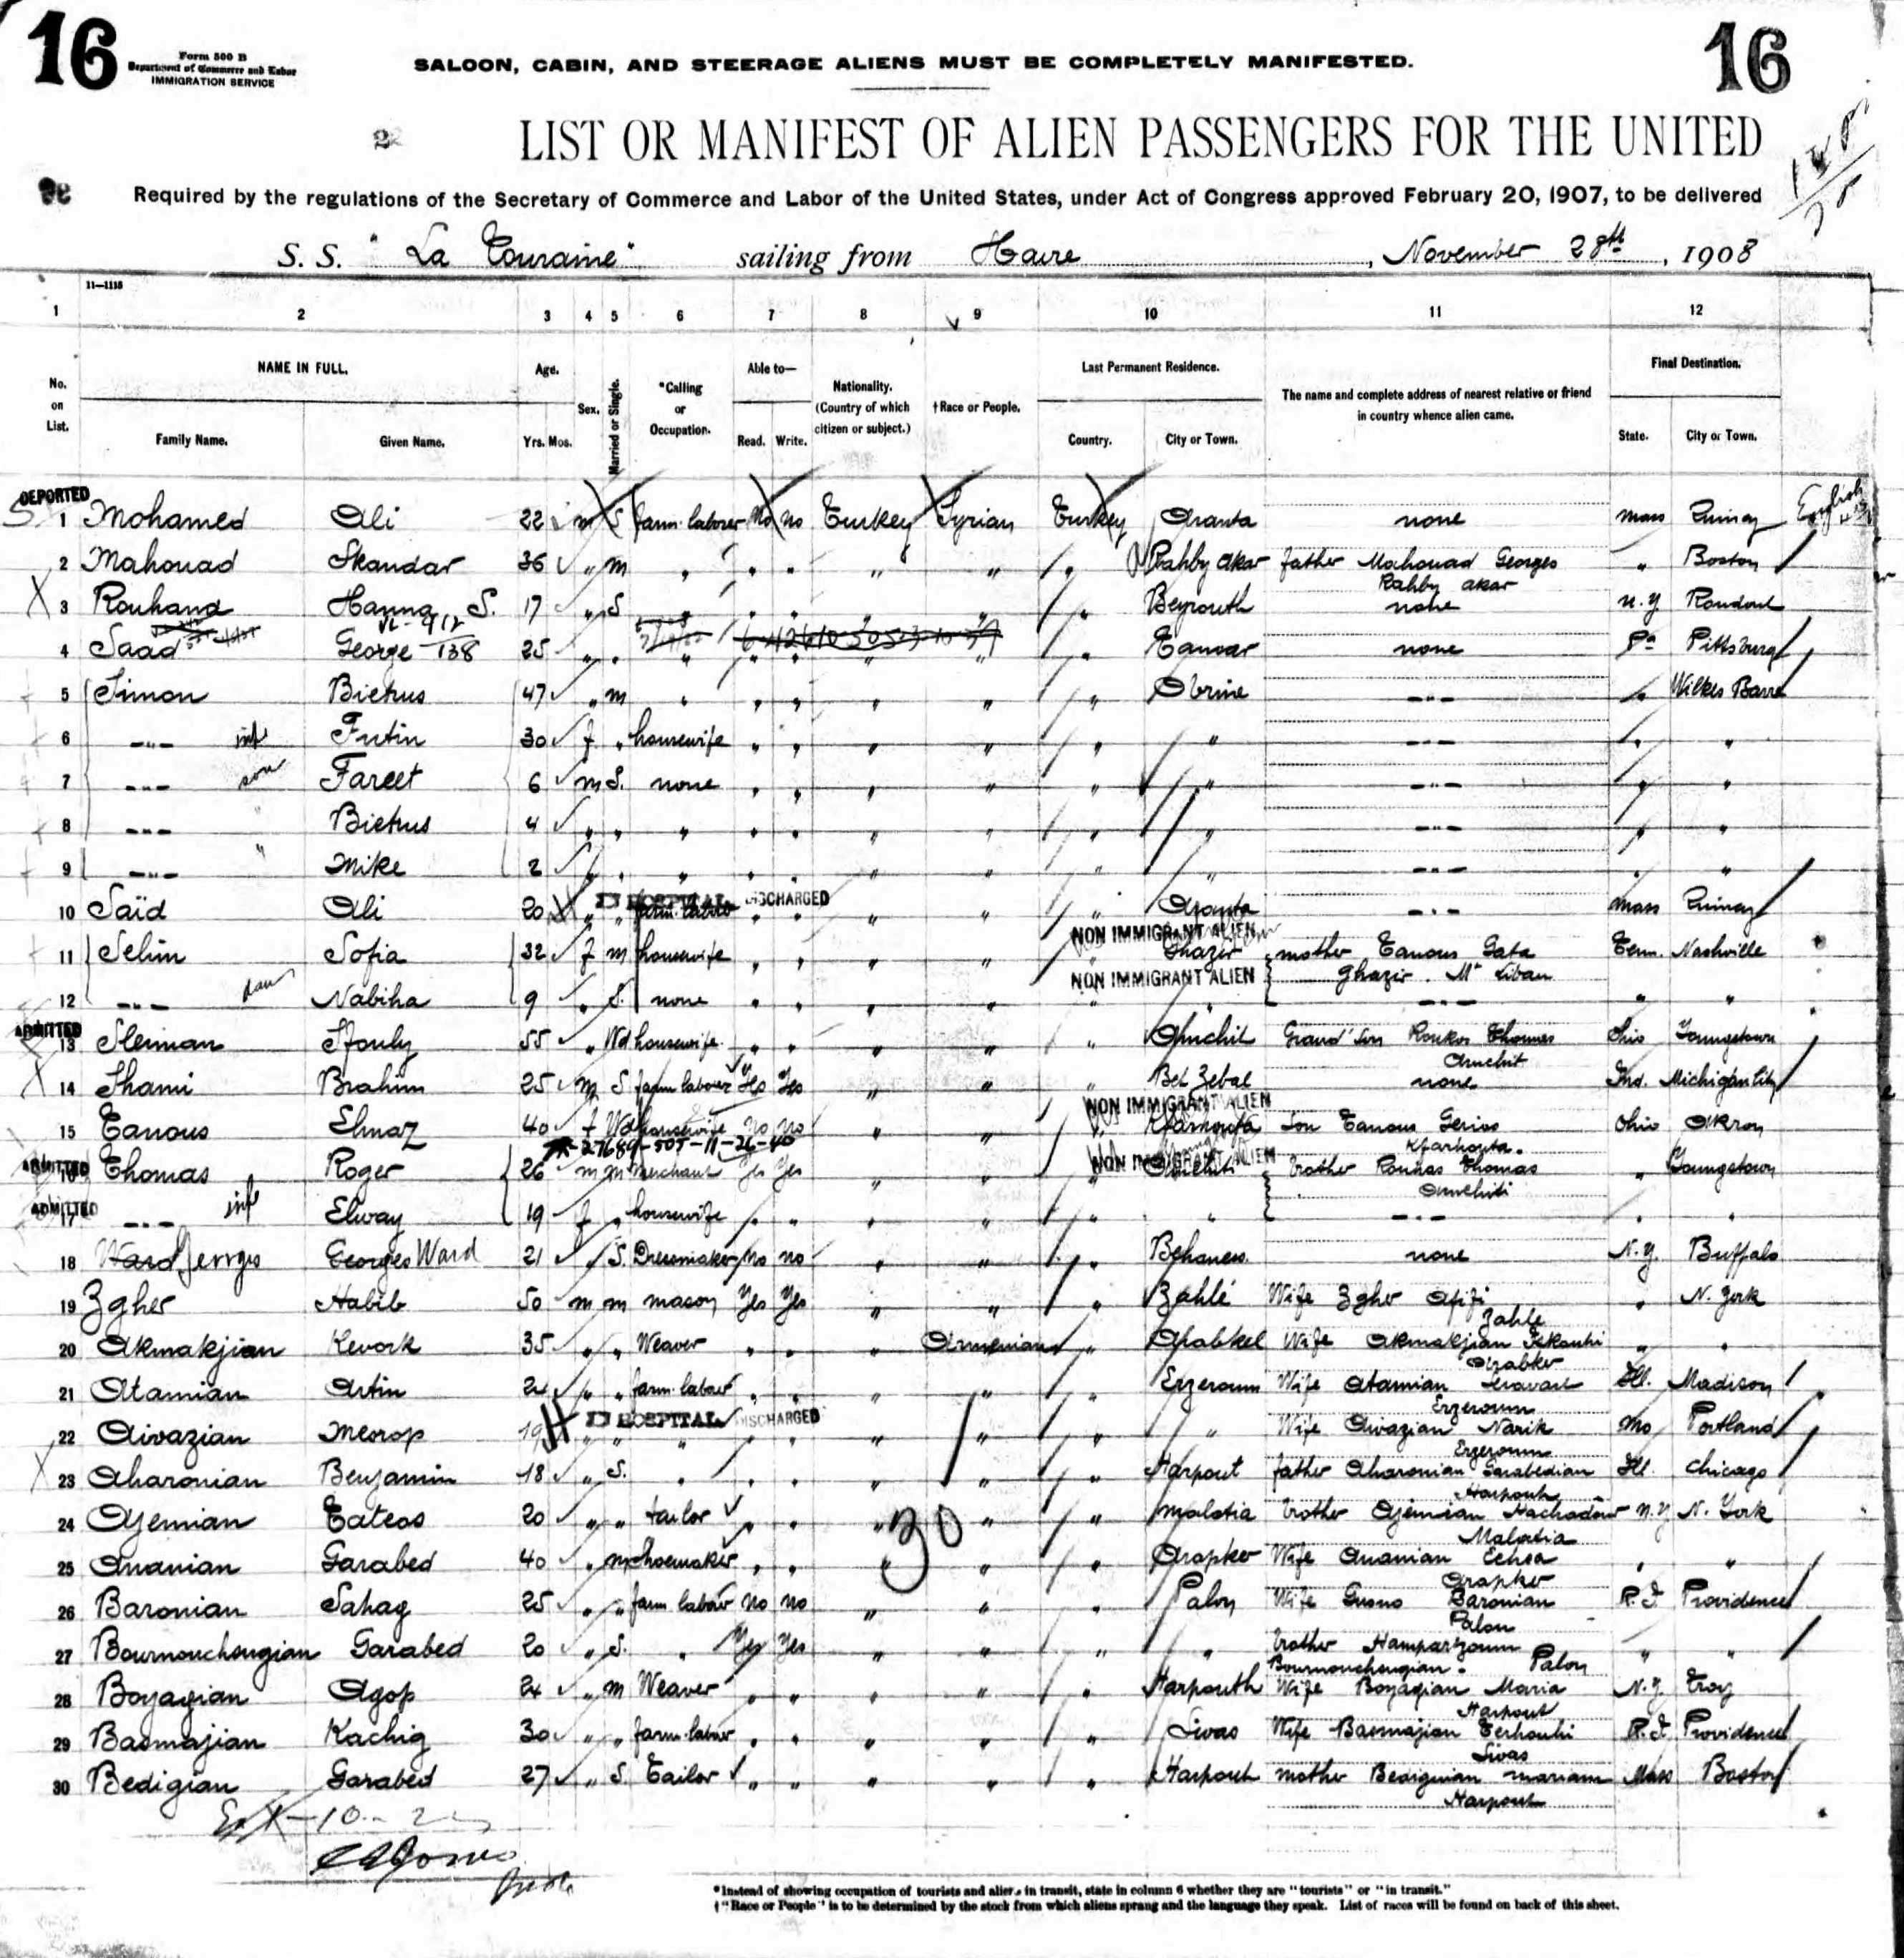 16
Form 500 B
Department of Commerce and Labor
IMMIGRATION SERVICE
SALOON, CABIN, AND STEERAGE ALIENS MUST BE COMPLETELY MANIFESTED.
16
2
LIST OR MANIFEST OF ALIEN PASSENGERS FOR THE UNITED
Required by the regulations of the Secretary of Commerce and Labor of the United States, under Act of Congress approved February 20, 1907, to be delivered
S. S. "La Touraine" sailing from Havre, November 28th, 1908
11—1115
1 2 3 4 5 6 7 8 9 10 11 12
No. on List.
NAME IN FULL.
Family Name. Given Name.
Age.
Yrs. Mos.
Sex.
Married or Single.
*Calling or Occupation.
Able to—
Read. Write.
Nationality. (Country of which citizen or subject.)
†Race or People.
Last Permanent Residence.
Country. City or Town.
The name and complete address of nearest relative or friend in country whence alien came.
Final Destination.
State. City or Town.
DEPORTED
1 Mohamed Ali 22 m S farm laborer no no Turkey Syrian Turkey none Mass
2 Mahouad Skandar 36 " m " " " " " " Rahby akar father Mahouad Georges " Boston
Rahby akar
3 Rouhand Hanna S. 17 " S " " " " " " Beyrouth none N.Y Rondout
4 Saad George 25 " " " " " " " " none Pa Pittsburg
5 Simon Bietrus 47 " m " " " " " " Obrine -"- " Wilkes Barre
6 -"- Futin 30 f " housewife " " " " " " -"- " "
7 -"- son Fareet 6 m S. none " " " " " " -"- " "
8 -"- " Bietrus 4 " " " " " " " " " -"- " "
9 -"- " Mike 2 " " " " " " " " " -"- " "
10 Saïd Ali 20 " " farm labor " " " " " -"- Mass
IN HOSPITAL DISCHARGED
NON IMMIGRANT ALIEN
11 Selim Sofia 32 f m housewife " " " " " Ghazir mother Tanous Gata Tenn. Nashville
NON IMMIGRANT ALIEN Ghazir. Mt Liban
12 -"- dau Nabiha 9 " S. none " " " " " " -"- " "
ADMITTED
13 Sleiman 55 " Wd housewife " " " " " Amchit Grand Son Roukos Thomas Ohio Youngstown
Amchit
14 Shami Brahim 25 m S farm laborer Yes Yes " " " none Ind. Michigan City
NON IMMIGRANT ALIEN
15 Tanous 40 f Wd housewife No no " " " Son Tanous Ohio Akron
ADMITTED
NON IMMIGRANT ALIEN
16 Thomas Roger 26 m m merchant Yes Yes " " " brother Thomas " Youngstown
ADMITTED
17 -"- 19 f " housewife " " " " " " -"- " "
18 Georges Ward 21 S. Dressmaker no no " " " none N.Y. Buffalo
19 Zgher Habib 50 m m mason Yes Yes " " " Zahlé Wife Zgher Afifi " N. York
Zahle
20 Akmakjian Kevork 35 " " Weaver " " " Armenian " Wife Akmakjian " "
21 Atamian Artin 24 " " farm labor " " " " " Erzeroum Wife Atamian Ill. Madison
Erzeroum
IN HOSPITAL DISCHARGED
22 Aivazian Mesrop 19 " " " " " " " " " Wife Aivazian Narik Mo Portland
Erzeroum
23 Aharonian Benjamin 18 " S. " " " " " " Harpout father Aharonian Garabedian Ill. Chicago
Harpout
24 Ajemian Tateos 20 " " tailor " " " " " Malatia brother Ajemian Hachadour N.Y N. York
Malatia
30
25 Ananian Garabed 40 " m shoemaker " " " " " Arapker Wife Ananian " "
Arapker
26 Baronian Sahag 25 " " farm labor no no " " " Palou Wife Baronian R.I Providence
Palou
27 Bournouchougian Garabed 20 " S. " Yes Yes " " " " brother Hamparzoum " "
Bournouchougian. Palou
28 Boyagian Agop 24 " m Weaver " " " " " Harpouth Wife Boyagian Maria N.Y. Troy
Harpout
29 Basmajian Kachig 30 " " farm labor " " " " " Sivas Wife Basmajian R.I. Providence
Sivas
30 Bedigian Garabed 27 " S Tailor " " " " " Harpout mother Mariam Mass Boston
Harpout
*Instead of showing occupation of tourists and aliens in transit, state in column 6 whether they are "tourists" or "in transit."
†"Race or People" is to be determined by the stock from which aliens sprang and the language they speak. List of races will be found on back of this sheet.